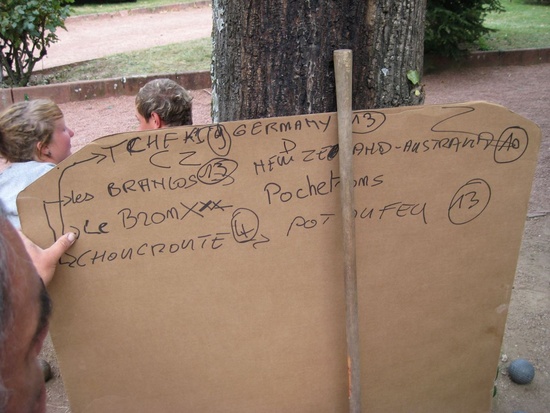 TCHEKI 9 GERMANY 13
CZ
LES BRANLOS 13 NEW ZEALAND-AUSTRALIA 10
Le BROMX Pochetroms
CHOUCROUTE 4 POT AU FEU 13